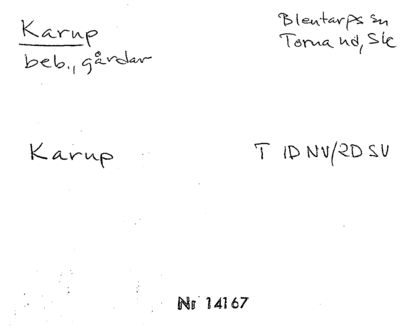 Karup
beb., gårdar
Blentarps sn
Torna hd, Sk
Karup
T 1D NV/2D SV
Nr 14167